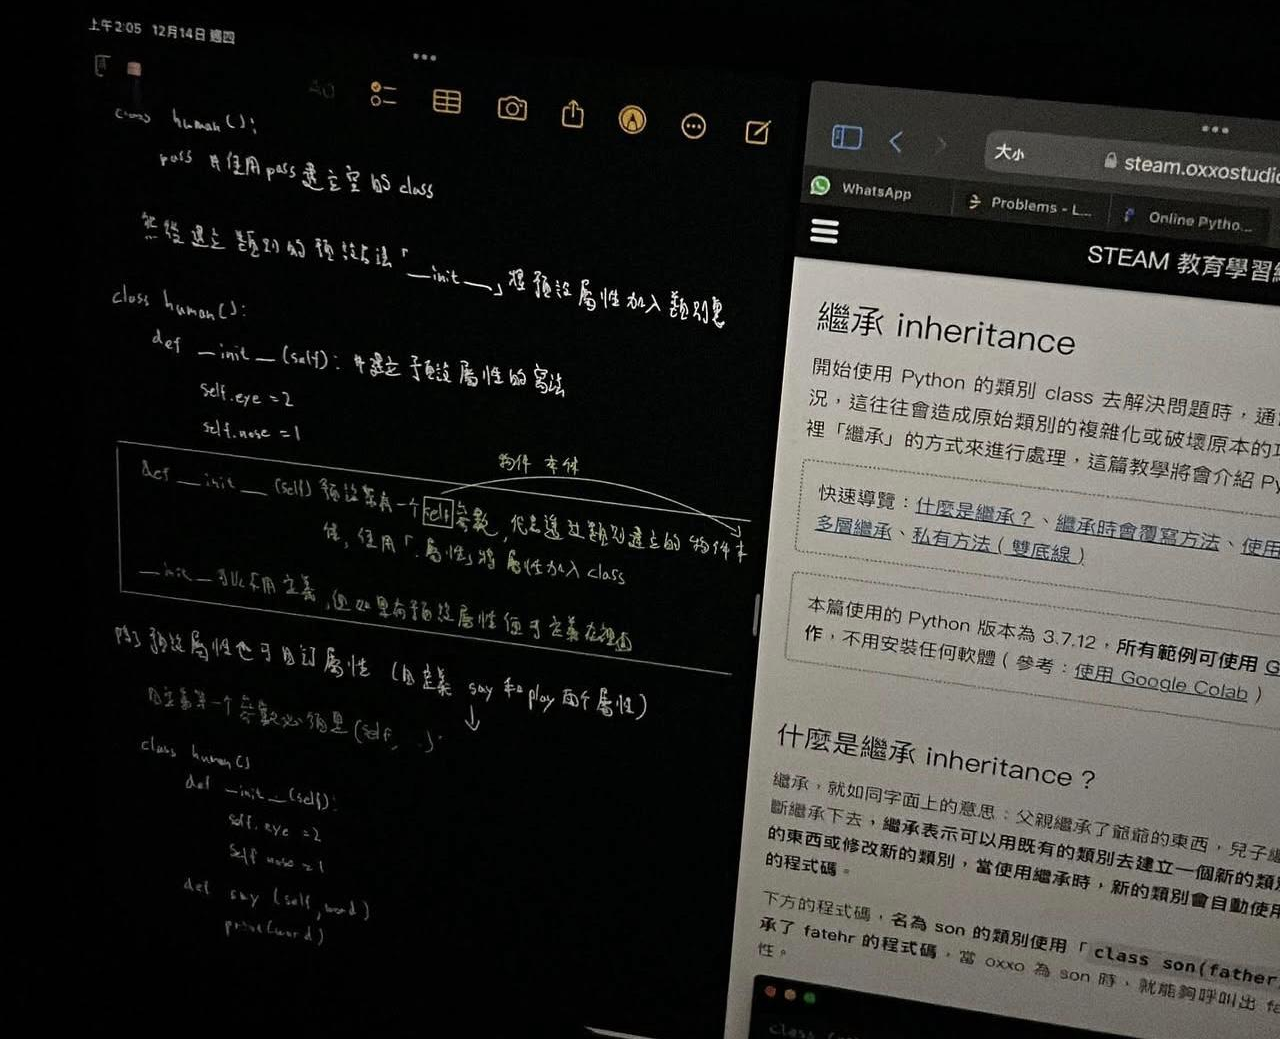 上午2:05 12月14日 週四
class human():
pass #使用pass建立空的class
然後建立類別的預設方法「__init__」將預設屬性加入類別裡
class human():
def __init__(self): #建立預設屬性的寫法
self.eye = 2
self.nose = 1
物件 本体
def __init__(self) 預設帶有一个self參數, 代表透過類別建立的物件本
体, 使用「.屬性」將屬性加入class
__init__可以不用定義, 但如果有預設屬性便可定義在裡面
除了預設屬性也可自訂屬性 (自定義 say 和play 兩个屬性)
自定義第一个參數必須是(self, ..):
class human()
def __init__(self):
self.eye =2
self nose =1
def say (self, word)
print(word)
大小
steam.oxxostudio
WhatsApp
Problems - L...
Online Pytho...
STEAM 教育學習
繼承 inheritance
開始使用 Python 的類別 class 去解決問題時，通
況，這往往會造成原始類別的複雜化或破壞原本的
裡「繼承」的方式來進行處理，這篇教學將會介紹 Py
快速導覽：什麼是繼承？、繼承時會覆寫方法、使用
多層繼承、私有方法 ( 雙底線 )
本篇使用的 Python 版本為 3.7.12，所有範例可使用 G
作，不用安裝任何軟體 ( 參考：使用 Google Colab )
什麼是繼承 inheritance？
繼承，就如同字面上的意思：父親繼承了爺爺的東西，兒子繼
斷繼承下去，繼承表示可以用既有的類別去建立一個新的類別
的東西或修改新的類別，當使用繼承時，新的類別會自動使用
的程式碼。
下方的程式碼，名為 son 的類別使用「class son(father)
承了 fatehr 的程式碼，當 oxxo 為 son 時，就能夠呼叫出 fa
性。
class